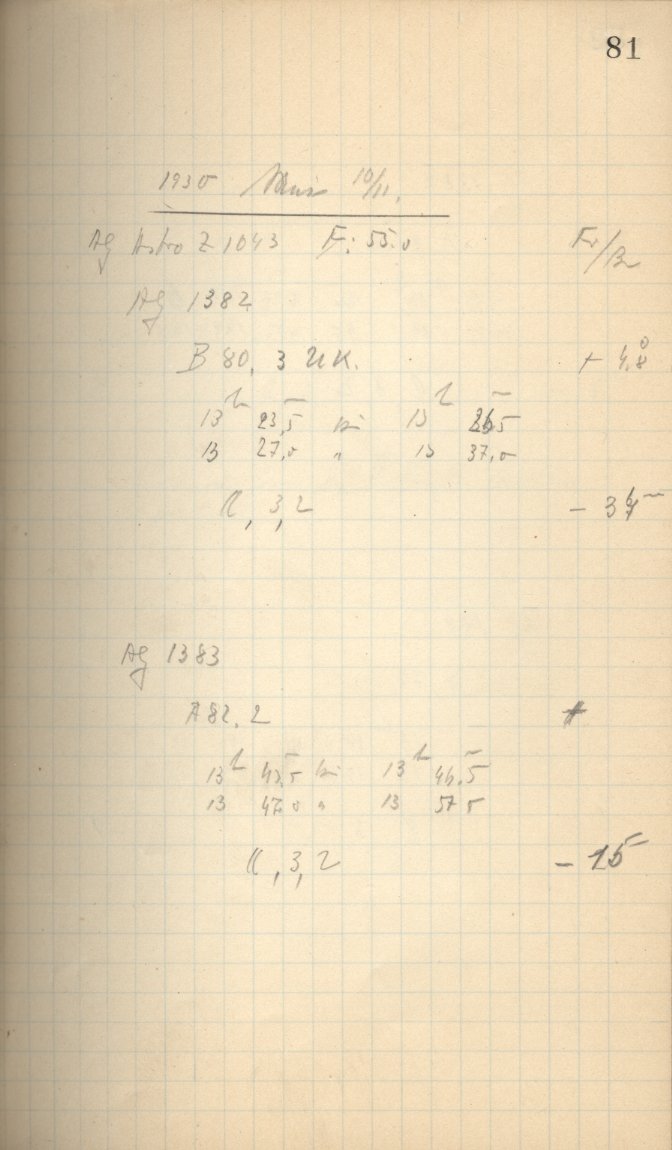 81
1930 März 10/11.
Ag Astro Z 1043 F: 55.0 Fr/Br
Ag 1382
B 80, 3 UK. + 4.8°
13h 23,5 bis 13h 26,5
13 27,0 " 13 37,0
K, 3, 2
Ag 1383
A 82, 2
13h 43,5 bis 13h 46,5
13 47,0 " 13 57 5
K, 3, 2 - 15m